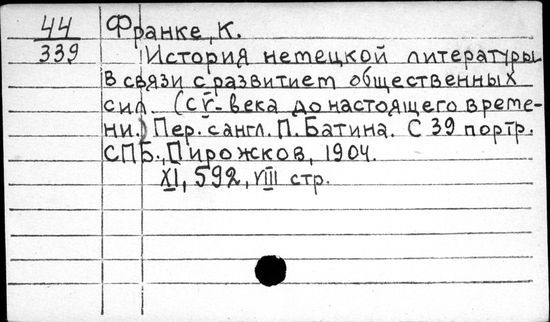 44
339
Франке, К.
История немецкой литературы
в связи с развитием общественных
сил. (С V-века до настоящего време-
ни.) Пер. с англ. П. Батина. С 39 портр.
СПБ., Пирожков, 1904.
XI, 592, VIII стр.